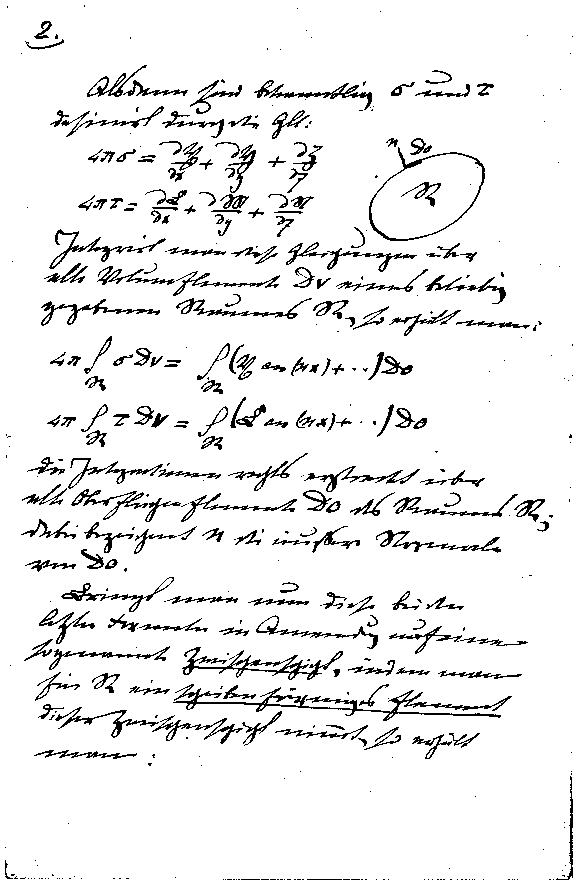 2.
Alsdann sind bekanntlich σ und τ
definirt durch die Gln:
4πσ = ∂𝔛/∂x + ∂𝔜/∂y + ∂ℨ/∂z
4πτ = ∂𝔏/∂x + ∂𝔐/∂y + ∂𝔑/∂z
n Do
ℜ
Integrirt man diese Gleichungen über
alle Volumelemente Dv eines beliebig
gegebenen Raumes ℜ, so erhält man:
4π ∫ σ Dv = ∫ (𝔛 cos(nx) + ..) Do
ℜ ℜ
4π ∫ τ Dv = ∫ (𝔏 cos(nx) + ..) Do
ℜ ℜ
die Integrationen rechts erstreckt über
alle Oberflächenelemente Do des Raumes ℜ;
dabei bezeichnet n die äußere Normale
von Do.
Bringt man nun diese beiden
letzten Formeln in Anwendung auf eine
sogenannte Zwischenschicht, indem man
für ℜ ein scheibenförmiges Element
dieser Zwischenschicht nimmt, so erhält
man: